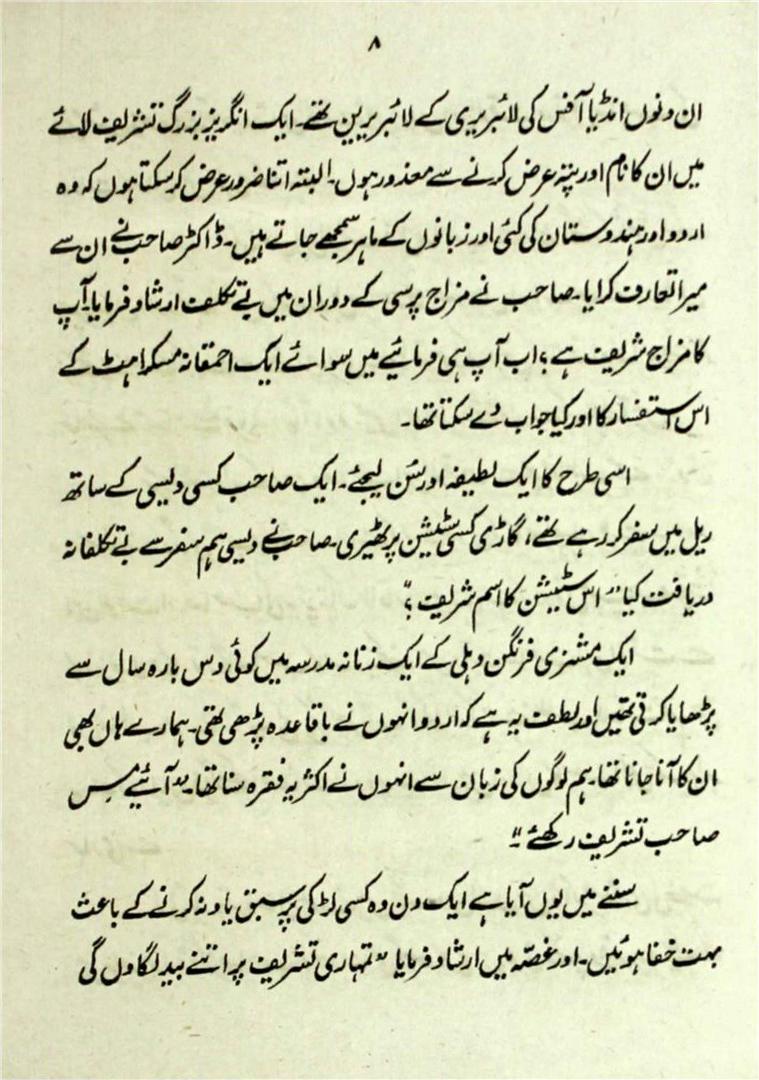 ۸
ان دنوں انڈیا آفس کی لائبریری کے لائبریرین تھے۔ ایک انگریز بزرگ تشریف لائے
میں ان کا نام اور پتہ عرض کرنے سے معذور ہوں۔ البتہ اتنا ضرور عرض کر سکتا ہوں کہ وہ
اردو اور ہندوستان کی کئی اور زبانوں کے ماہر سمجھے جاتے ہیں۔ ڈاکٹر صاحب نے ان سے
میرا تعارف کرایا۔ صاحب نے مزاج پرسی کے دوران میں بے تکلف ارشاد فرمایا۔ آپ
کا مزاج شریف ہے؟ اب آپ ہی فرمائیے میں سوائے ایک احمقانہ مسکراہٹ کے
اس استفسار کا اور کیا جواب دے سکتا تھا۔
اسی طرح کا ایک لطیفہ اور سُن لیجئے۔ ایک صاحب کسی دیسی کے ساتھ
ریل میں سفر کر رہے تھے، گاڑی کسی سٹیشن پر ٹھیری۔ صاحب نے دیسی ہم سفر سے بے تکلفانہ
دریافت کیا "اس سٹیشن کا اسم شریف؟"
ایک مشنری فرنگن دہلی کے ایک زنانہ مدرسہ میں کوئی دس بارہ سال سے
پڑھایا کرتی تھیں اور لطف یہ ہے کہ اردو انہوں نے باقاعدہ پڑھی تھی۔ ہمارے ہاں بھی
ان کا آنا جانا تھا۔ ہم لوگوں کی زبان سے انہوں نے اکثر یہ فقرہ سنا تھا۔ "آئیے مِس
صاحب تشریف رکھئے"۔
سننے میں یوں آیا ہے ایک دن وہ کسی لڑکی پر سبق یاد نہ کرنے کے باعث
بہت خفا ہوئیں۔ اور غصّہ میں ارشاد فرمایا "تمہاری تشریف پر اتنے بید لگاوں گی